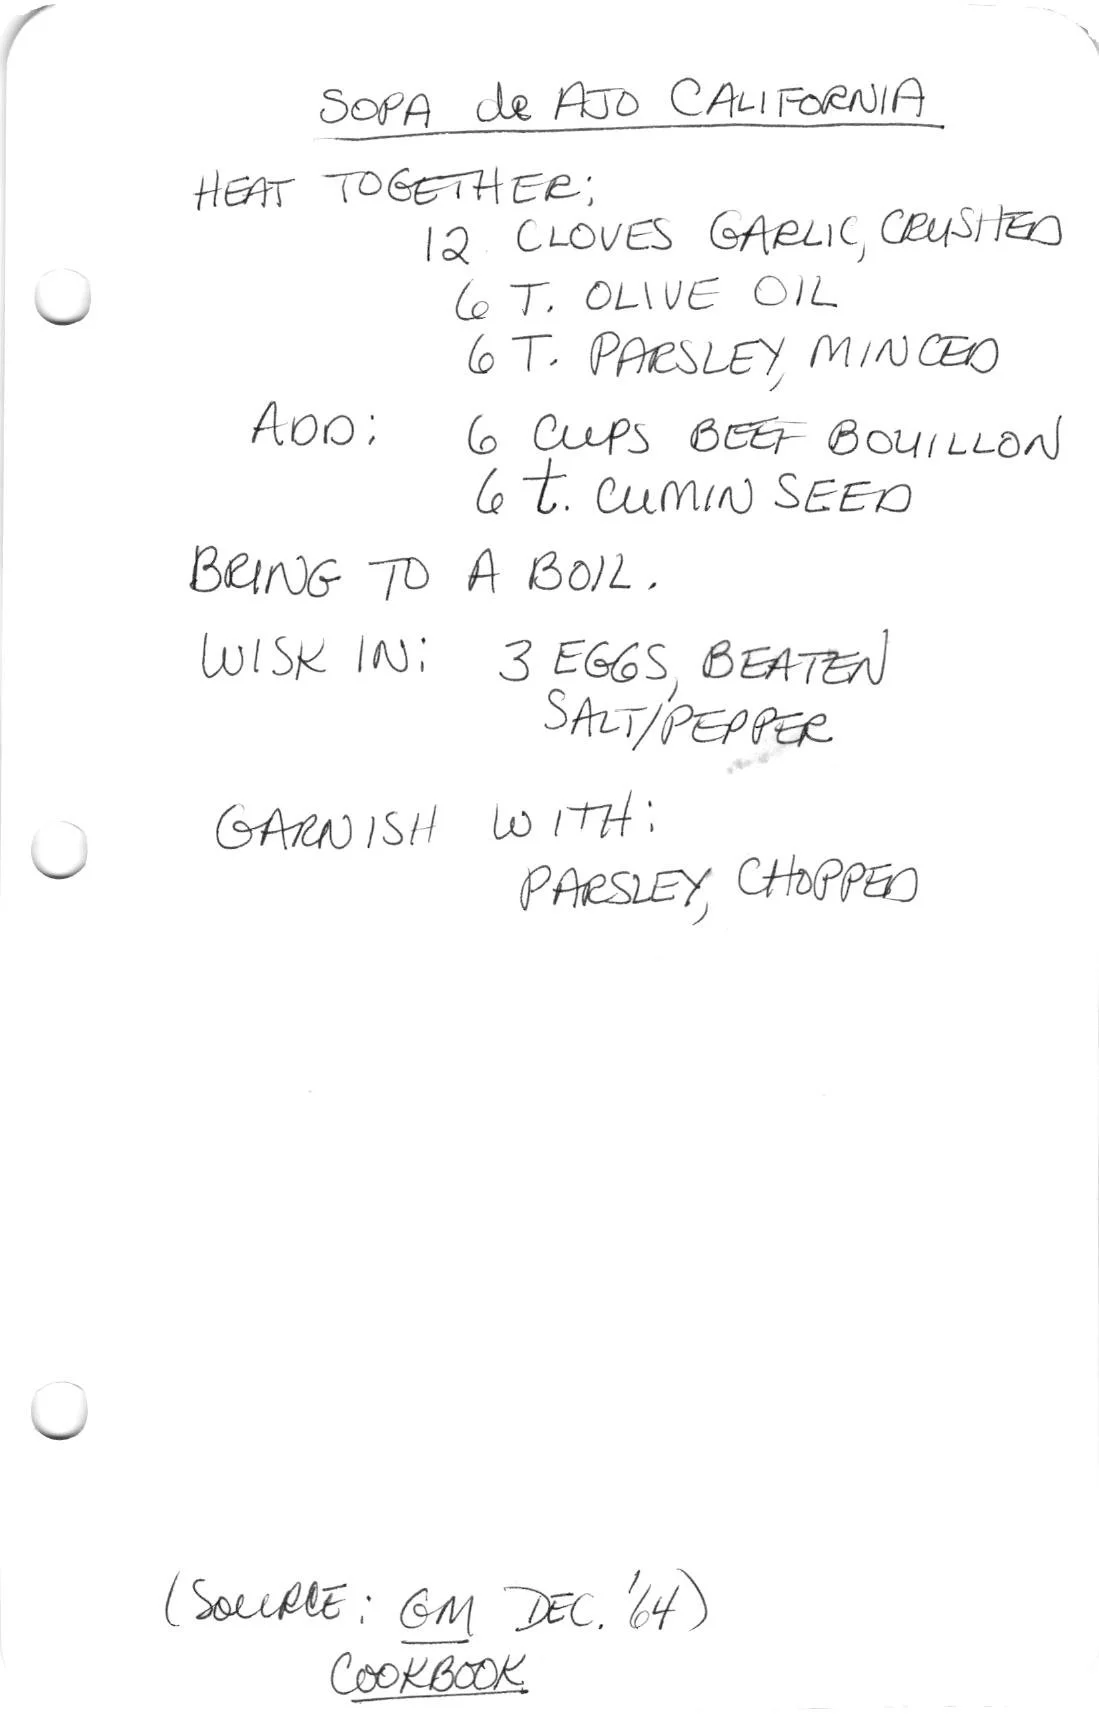 SOPA de AJO CALIFORNIA
HEAT TOGETHER:
12 CLOVES GARLIC, CRUSHED
6 T. OLIVE OIL
6 T. PARSLEY, MINCED
ADD: 6 CUPS BEEF BOUILLON
6 t. CUMIN SEED
BRING TO A BOIL.
WISK IN: 3 EGGS, BEATEN
SALT/PEPPER
GARNISH WITH:
PARSLEY, CHOPPED
(SOURCE: GM DEC. '64)
COOKBOOK